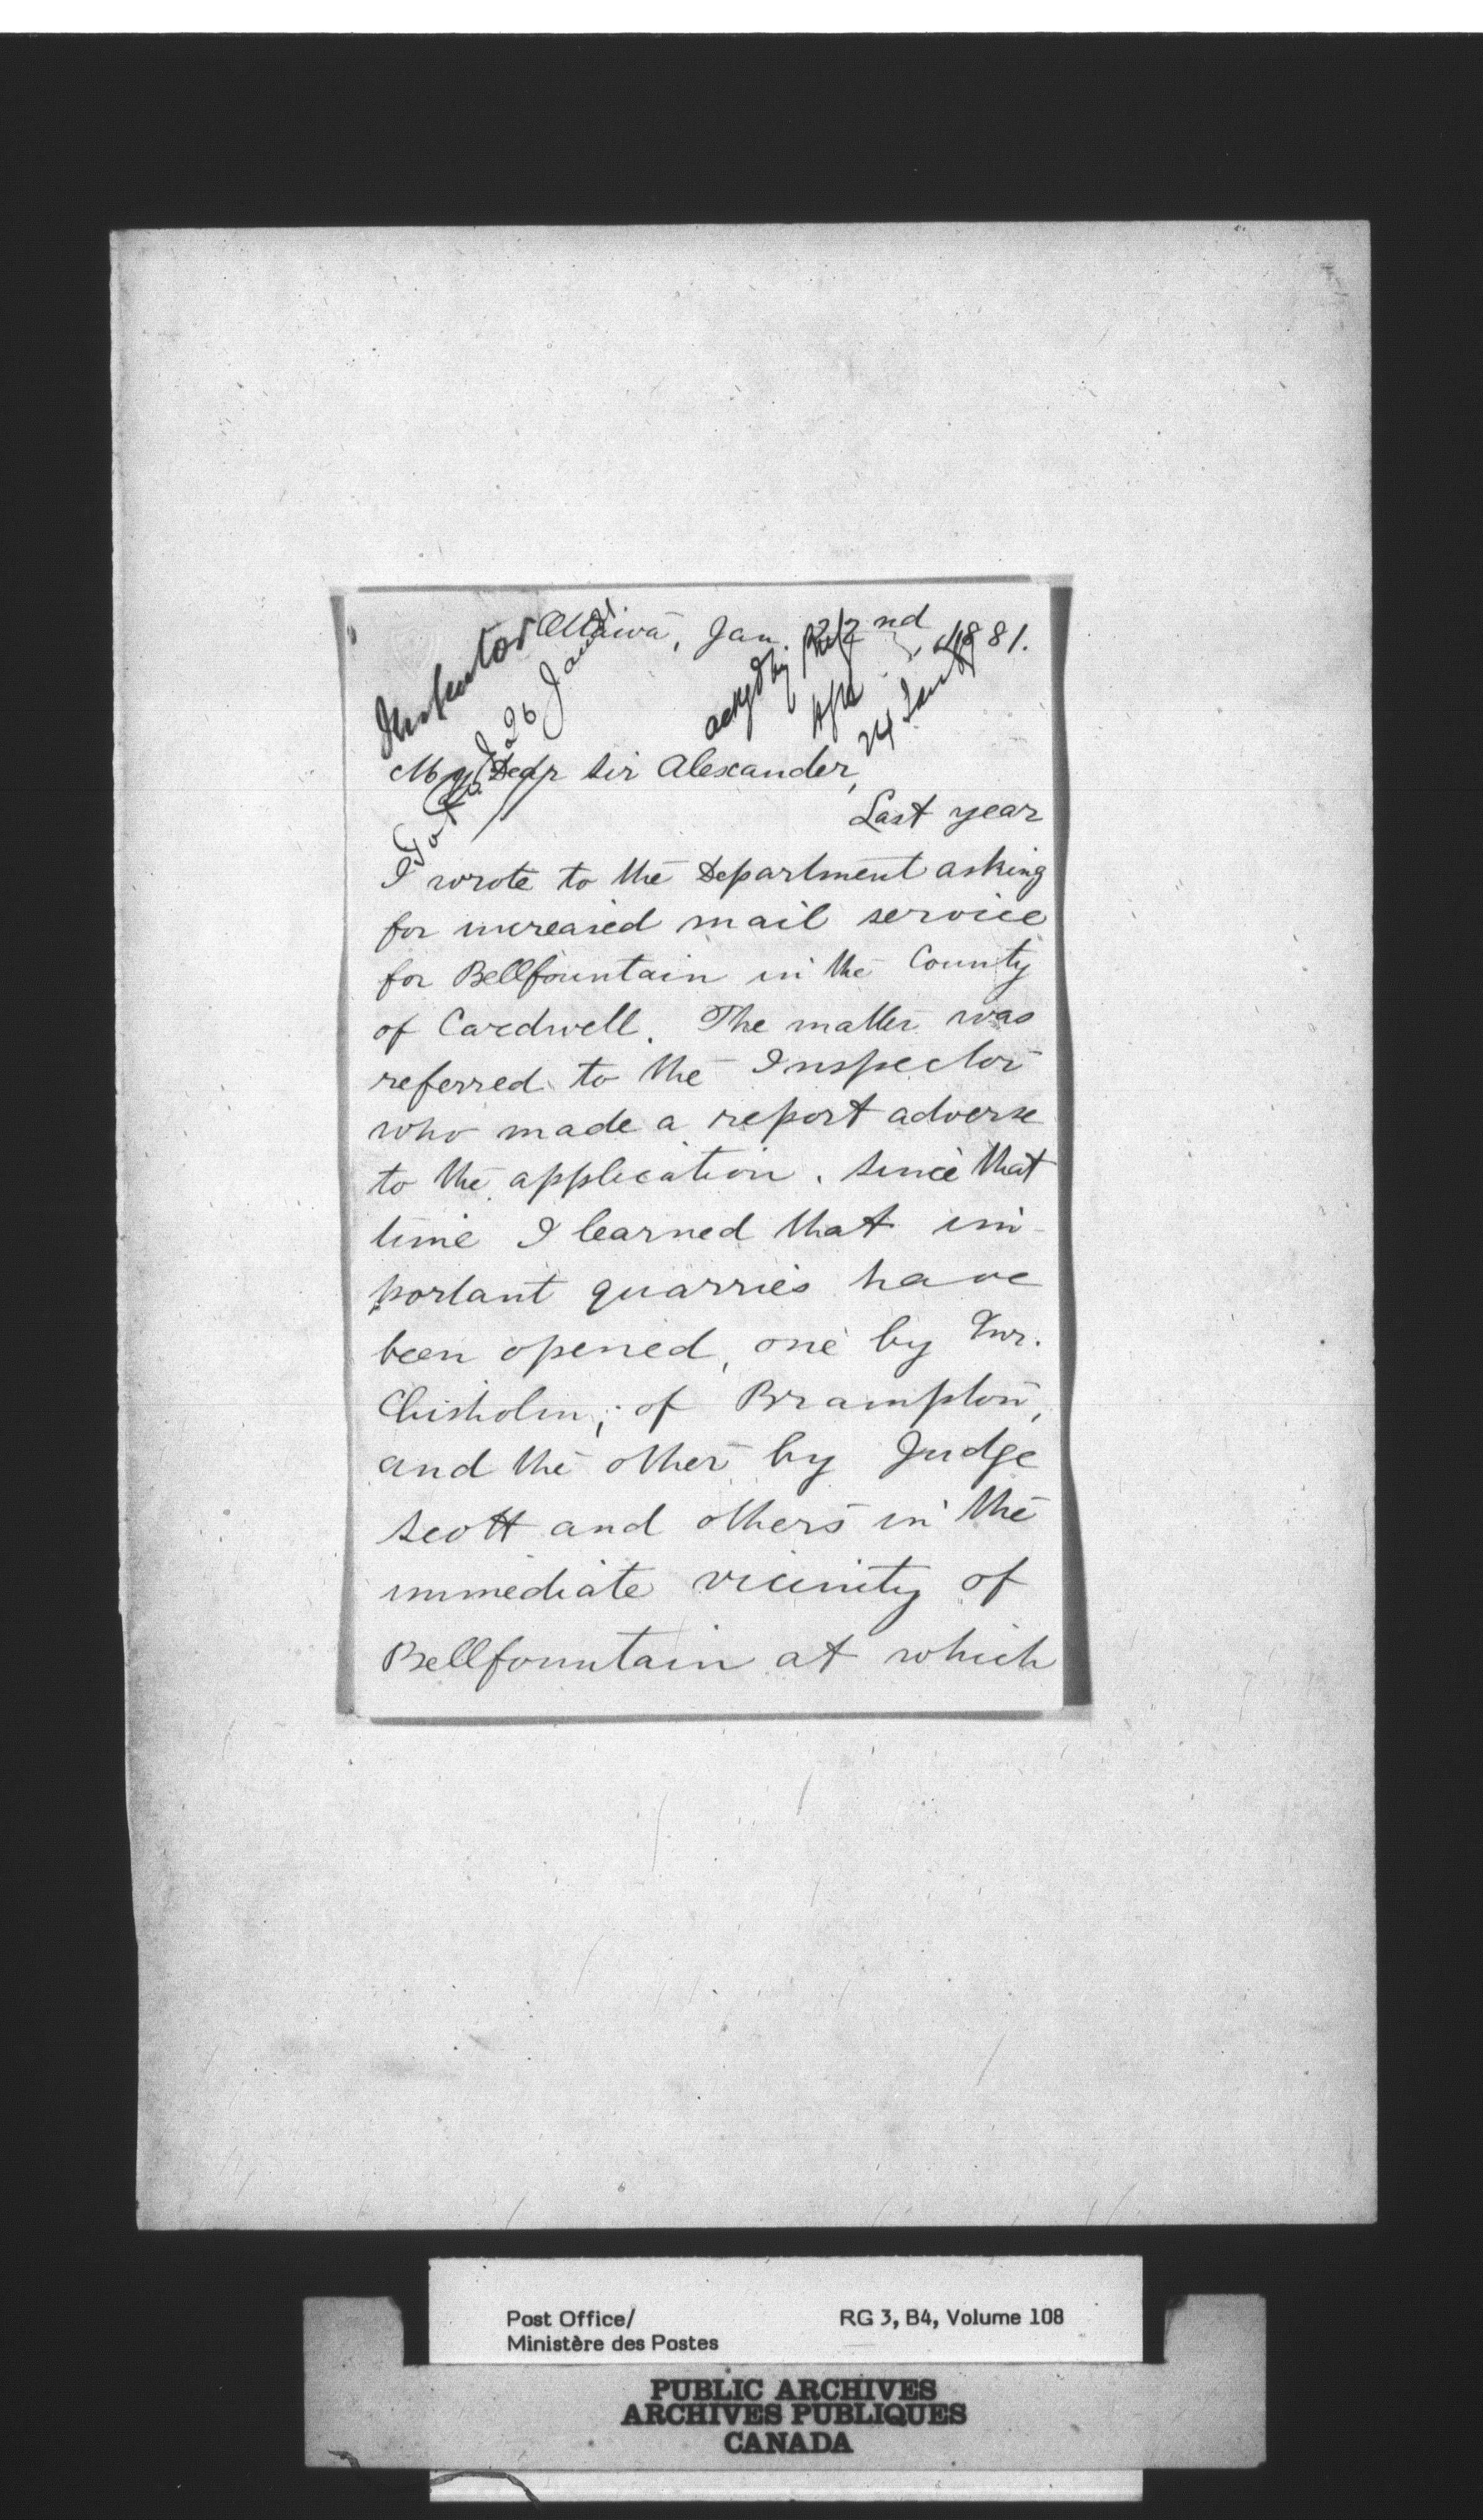 Ottawa, Jan. 22nd, 1881.
Inspector
26 Jan 81.
ackgd by
24 Jan
My Dear Sir Alexander,
Last year
I wrote to the Department asking
for increased mail service
for Bellfountain in the County
of Cardwell. The matter was
referred to the Inspector
who made a report adverse
to the application. Since that
time I learned that im-
portant quarries have
been opened, one by Mr.
Chisholm, of Brampton,
and the other by Judge
Scott and others in the
immediate vicinity of
Bellfountain at which
Post Office/ RG 3, B4, Volume 108
Ministère des Postes
PUBLIC ARCHIVES
ARCHIVES PUBLIQUES
CANADA